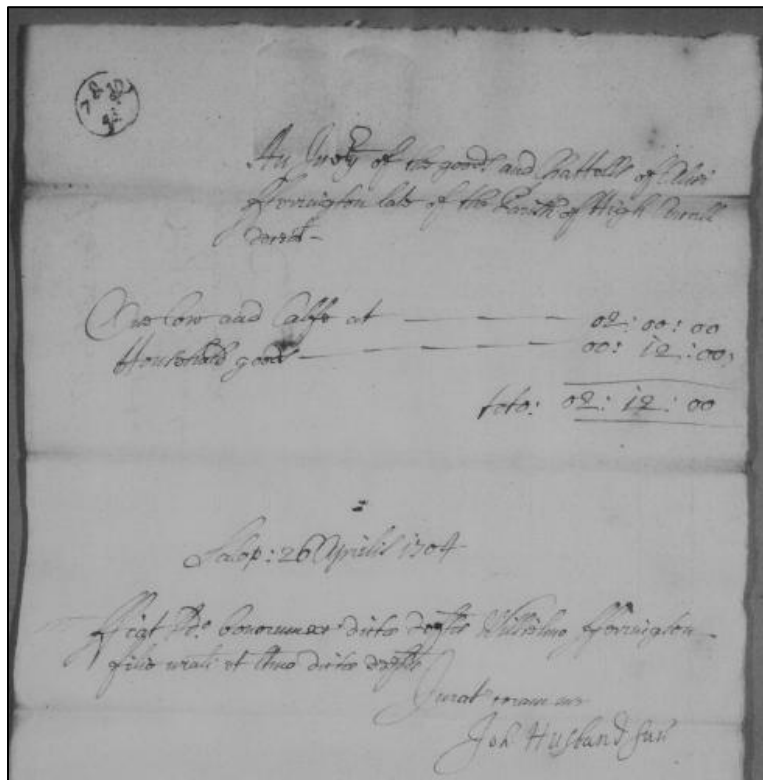 An Invty of the goods and Chattells of
fferrington late of the Parish of High Ercall
One Cow and Calfe at — — — — 02: 00: 00
Household goods — — — — 00: 12: 00
toto: 02: 12: 00
Salop: 26 Aprilis 1704
ffiat bonorum dictæ Willielmo fferrington
filio nrali et dictæ
Jurat coram me
Joh Husband Surr